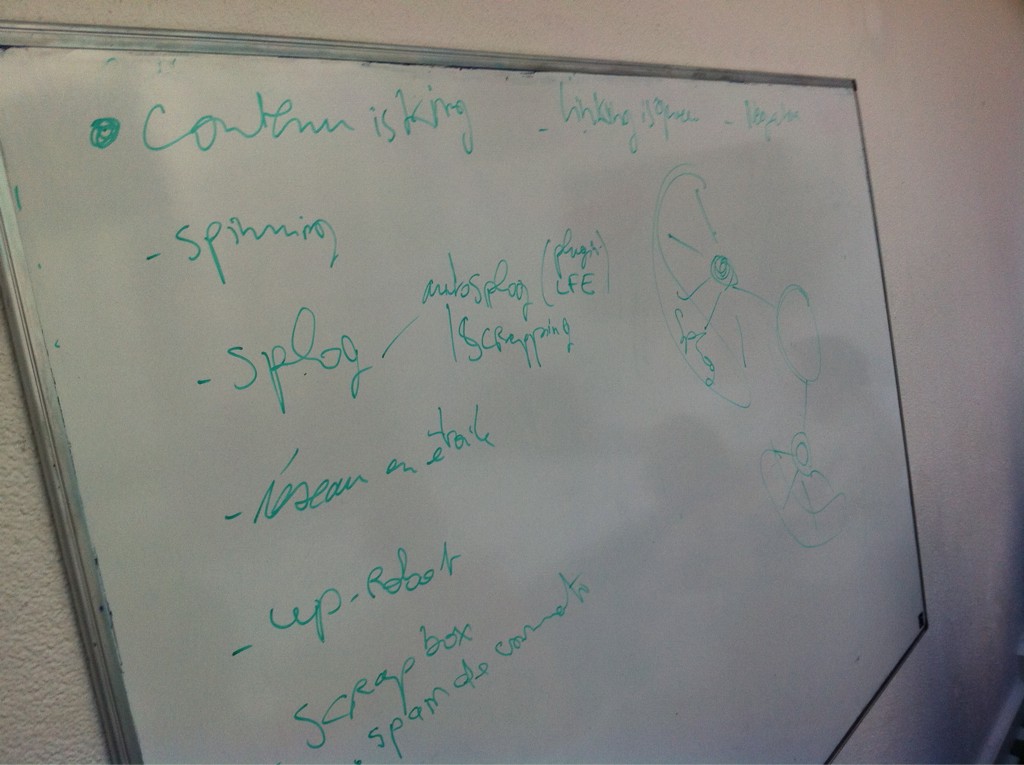 Contenu is King - linking is queen -
- spinning
- splog
autosplog (plugin LFE)
scrapping
- réseau en étoile
- wp-Robot
scrapbox
spam de comments